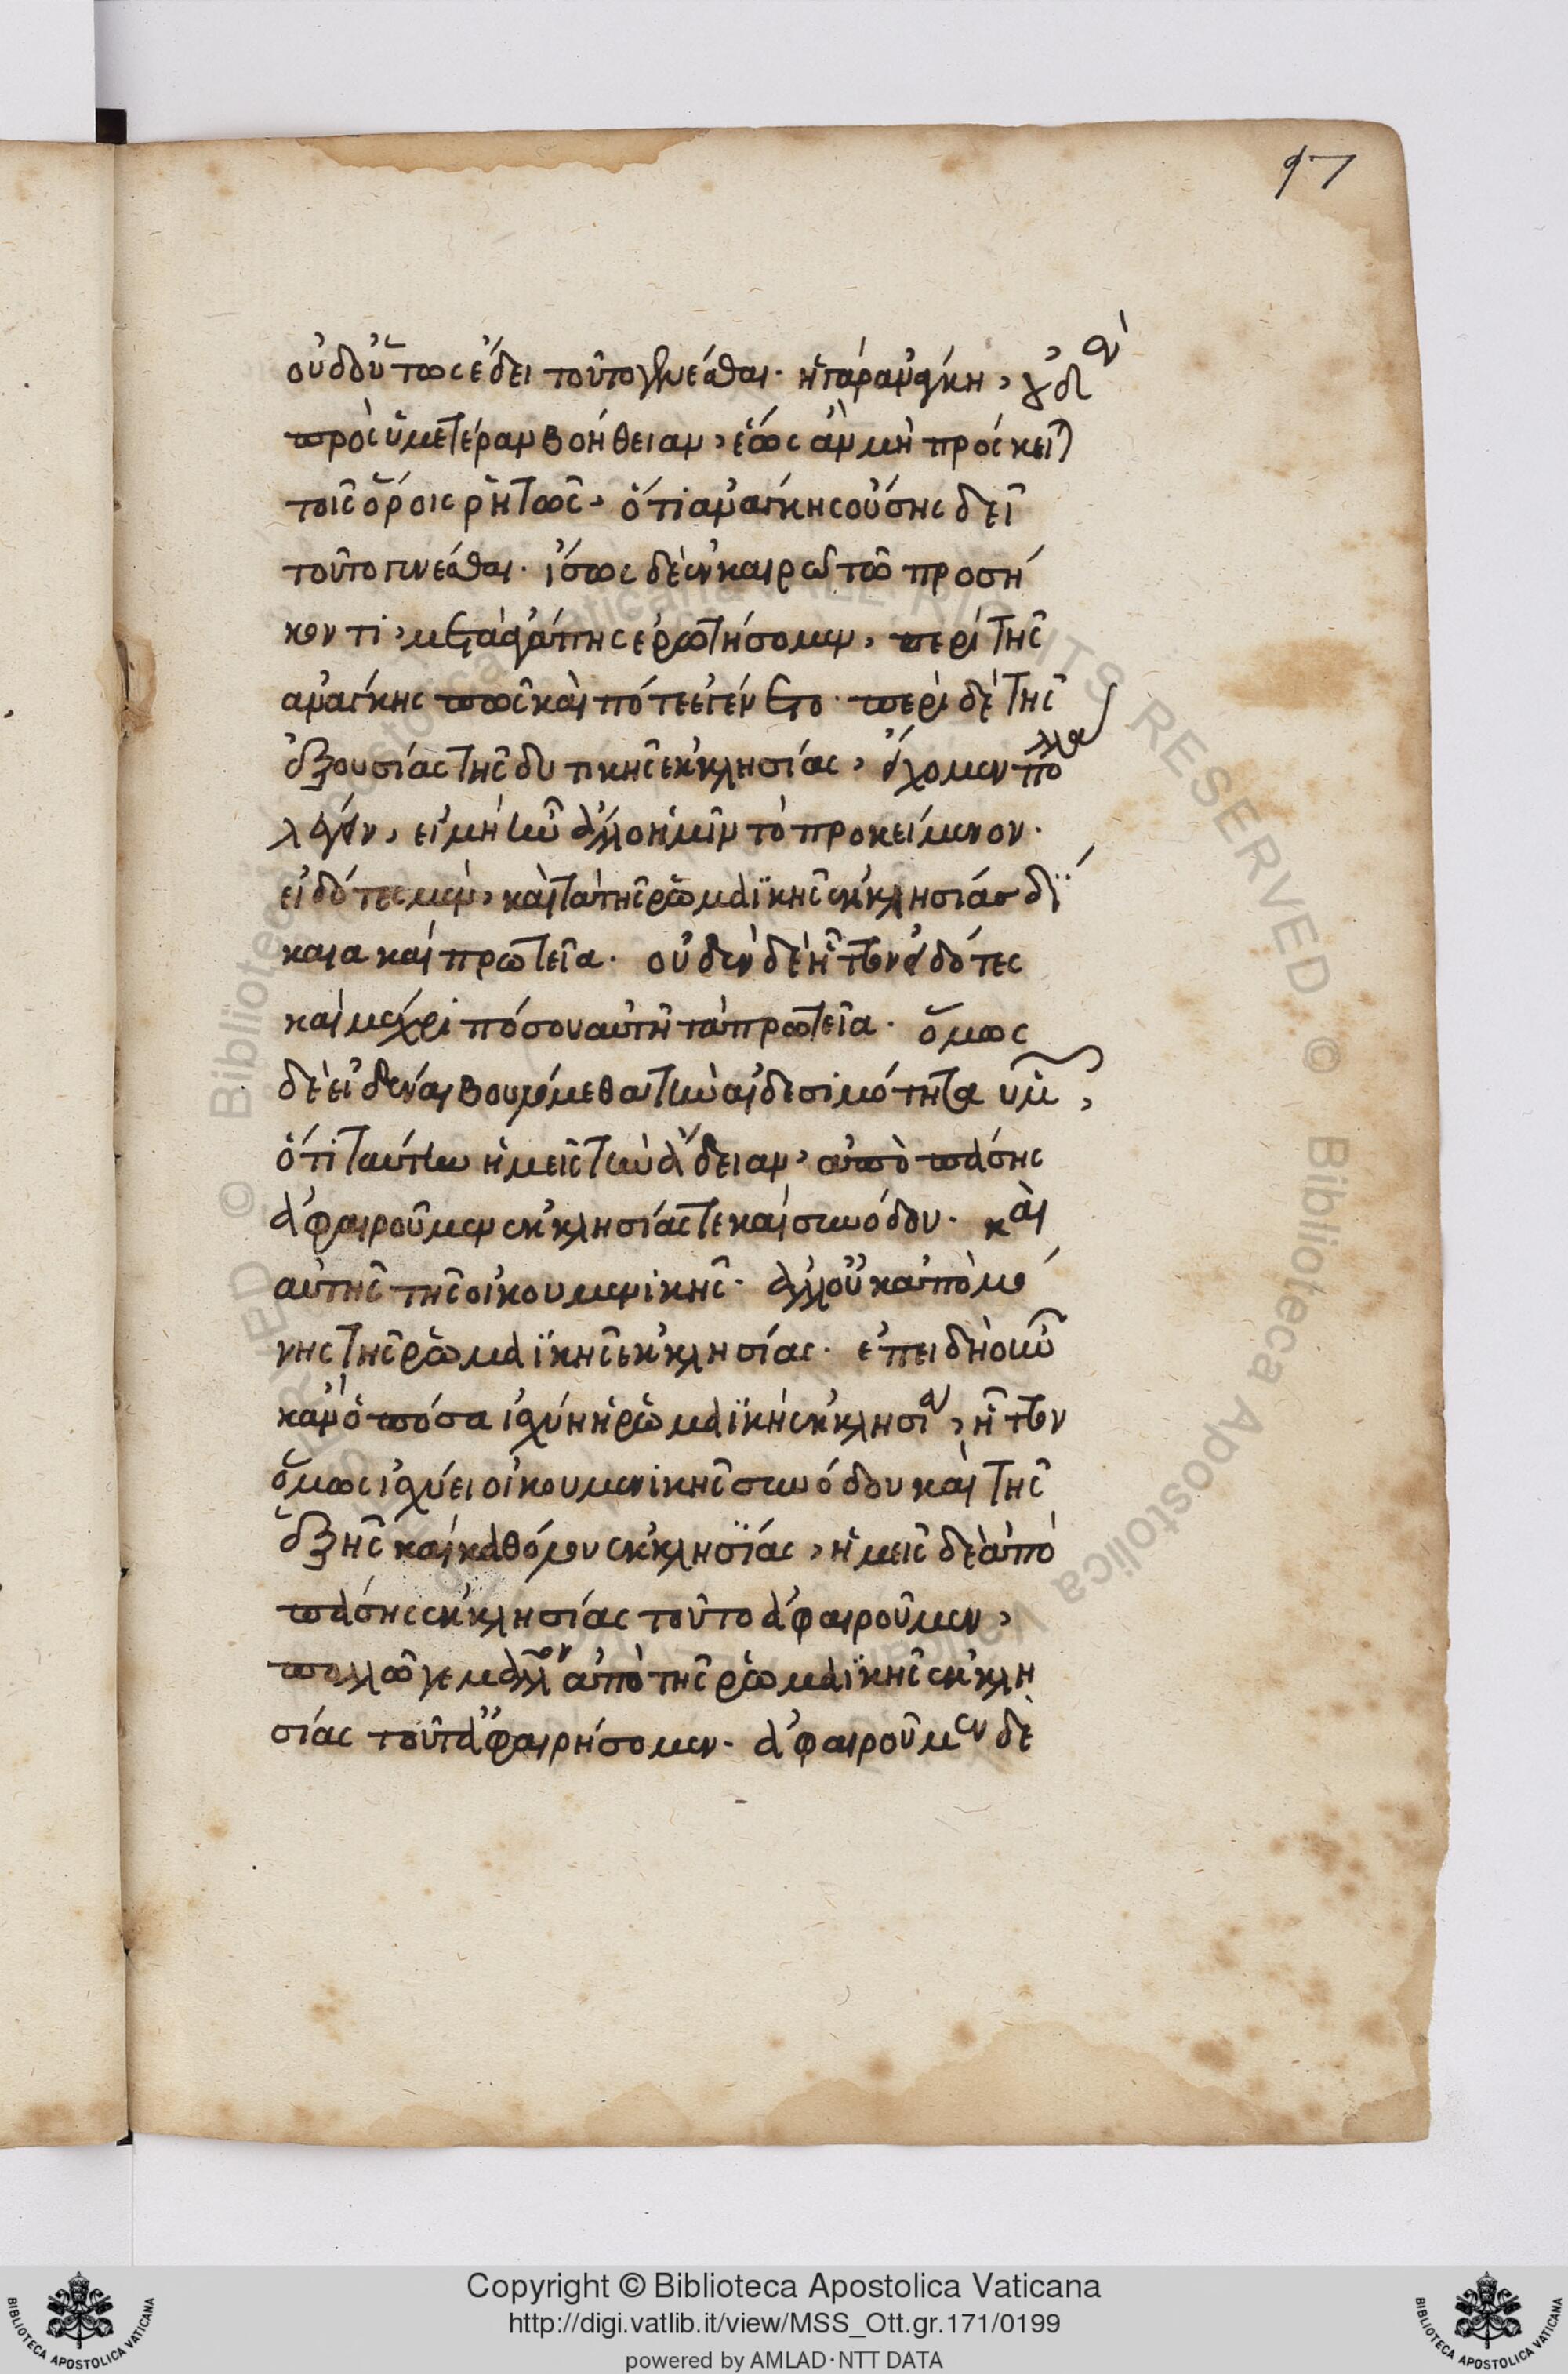 97
οὐδ' οὕτως ἔδει τοῦτο γενέσθαι. ἡ γὰρ ἀνάγκη, οὐδὲν
πρὸς ὑμετέραν βοήθειαν, ἕως ἂν μὴ πρόσκειται
τοῖς ὅροις ῥητῶς, ὅτι ἀνάγκης οὔσης δεῖ
τοῦτο γίνεσθαι. ἴσως δὲ ἐν καιρῷ τῷ προσή
κοντι, μετὰ ἀγάπης ἐρωτήσομεν, περὶ τῆς
ἀνάγκης πῶς καὶ πότε ἐγένετο. περὶ δὲ τῆς
ἐξουσίας τῆς δυτικῆς ἐκκλησίας, ἔχομεν πολλὰ
λέγειν, εἰ μὴ ἦν ἄλλο ἡμῖν τὸ προκείμενον.
εἰδότες μὲν, καὶ τὰ τῆς ῥωμαϊκῆς ἐκκλησίας δί
καια καὶ πρωτεῖα. οὐδὲν δὲ ἧττον εἰδότες
καὶ μέχρι πόσου αὐτῇ τὰ πρωτεῖα. ὅμως
δὲ εἰδέναι βουλόμεθα τὴν αἰδεσιμότητα ὑμῶν,
ὅτι ταύτην ἡμεῖς τὴν ἄδειαν, ἀπὸ πάσης
ἀφαιροῦμεν ἐκκλησίας τε καὶ συνόδου. καὶ
αὐτῆς τῆς οἰκουμενικῆς. ἀλλ' οὐκ ἀπὸ μό
νης τῆς ῥωμαϊκῆς ἐκκλησίας. ἐπειδὴ οὖν
κἂν ὁπόσα ἰσχύῃ ἡ ῥωμαϊκὴ ἐκκλησία, ἧττον
ὅμως ἰσχύει οἰκουμενικῆς συνόδου καὶ τῆς
ἑξῆς καὶ καθόλου ἐκκλησίας, ἡμεῖς δὲ ἀπὸ
πάσης ἐκκλησίας τοῦτο ἀφαιροῦμεν,
πολλῷ γε μᾶλλον ἀπὸ τῆς ῥωμαϊκῆς ἐκκλη
σίας τοῦτ' ἀφαιρήσομεν. ἀφαιροῦμεν δὲ
Copyright © Biblioteca Apostolica Vaticana
http://digi.vatlib.it/view/MSS_Ott.gr.171/0199
powered by AMLAD·NTT DATA